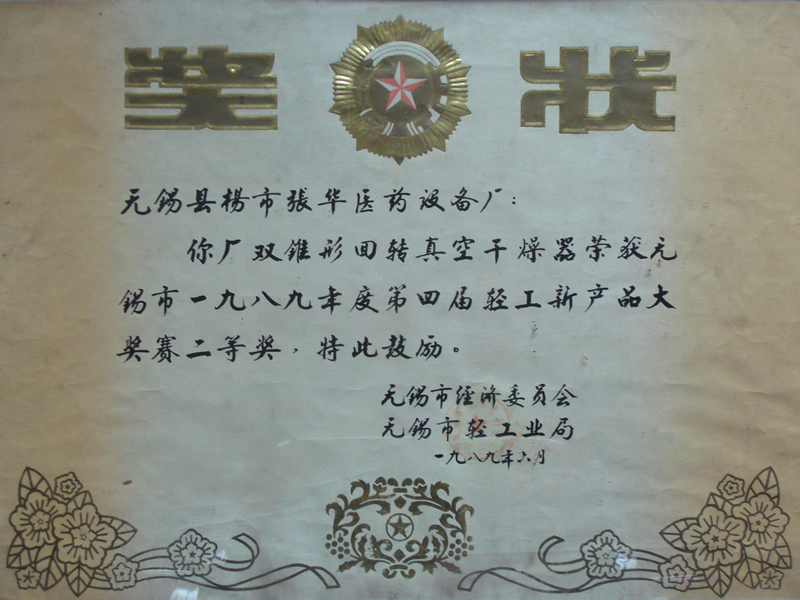 奖状
无锡县杨市张华医药设备厂：
你厂双锥形回转真空干燥器荣获无
锡市一九八九年度第四届轻工新产品大
奖赛二等奖，特此鼓励。
无锡市经济委员会
无锡市轻工业局
一九八九年六月